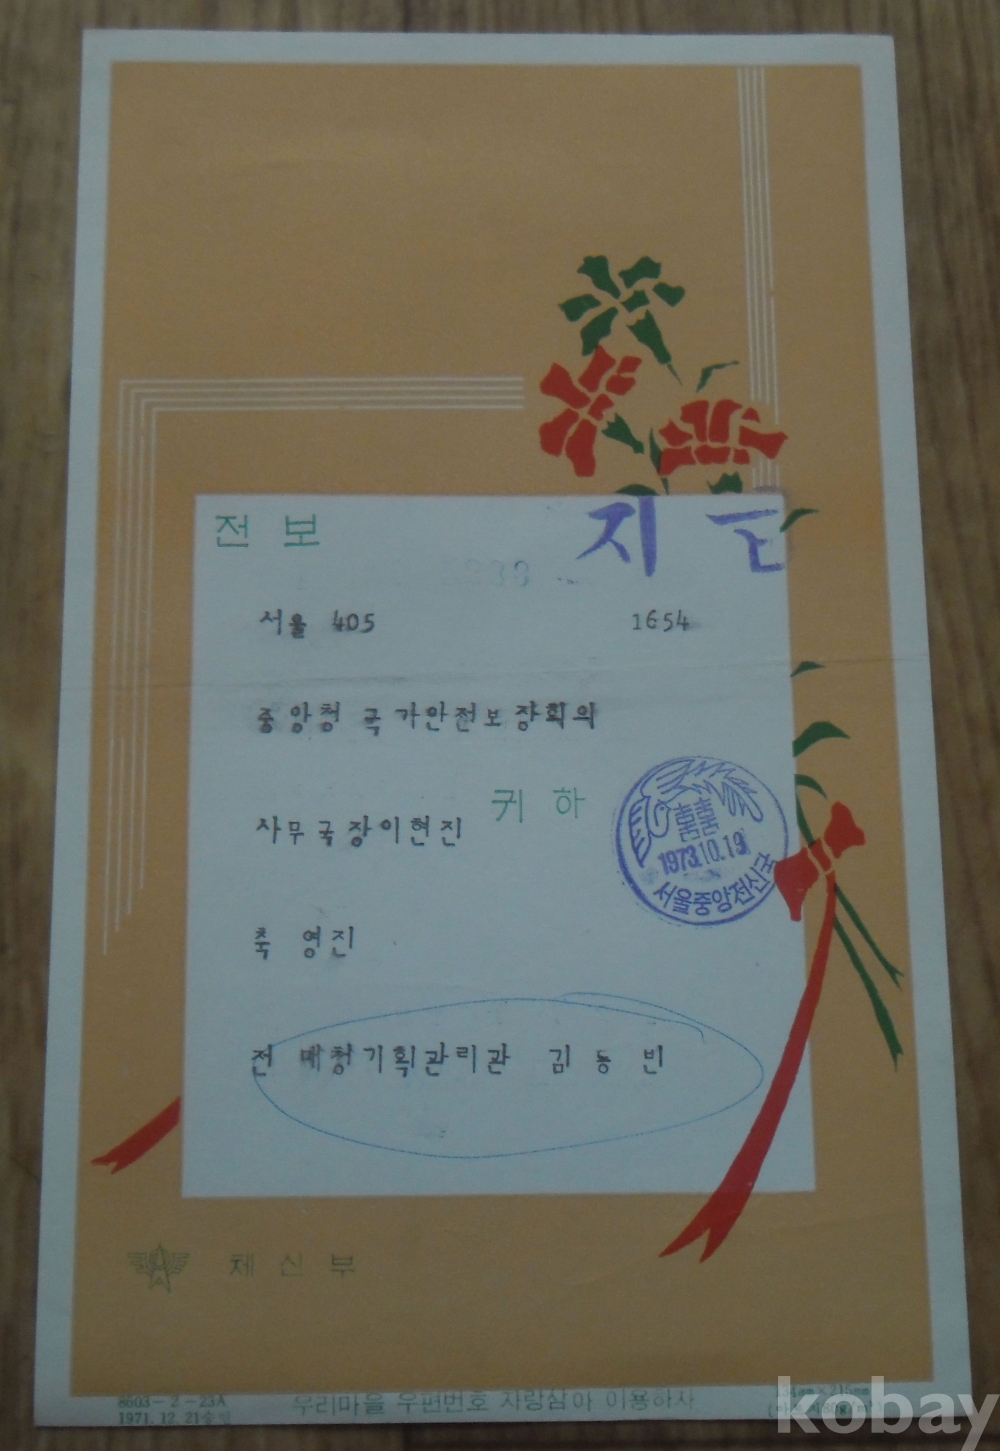 전보
지급
238
서울 405 1654
중앙청 국가안전보장회의
사무국장이현진 귀하
囍
1973.10.19
서울중앙전신국
축 영진
전 매청기획관리관 김동빈
체신부
8603-2-23A
1971. 12. 21승인
우리마을 우편번호 자랑삼아 이용하자
kobay